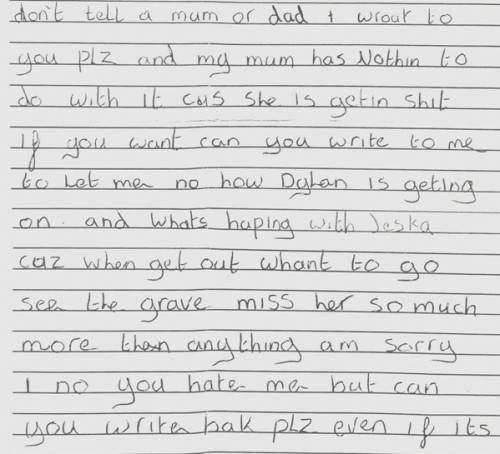 don't tell a mum or dad I wrout to
you plz and my mum has Nothin to
do with it cus she is getin shit
If you want can you write to me
to Let me no how Dylan is geting
on. and whats haping with Jeska
caz when get out whant to go
see the grave miss her so much
more than anything am sorry
I no you hate me but can
you write bak plz even if its